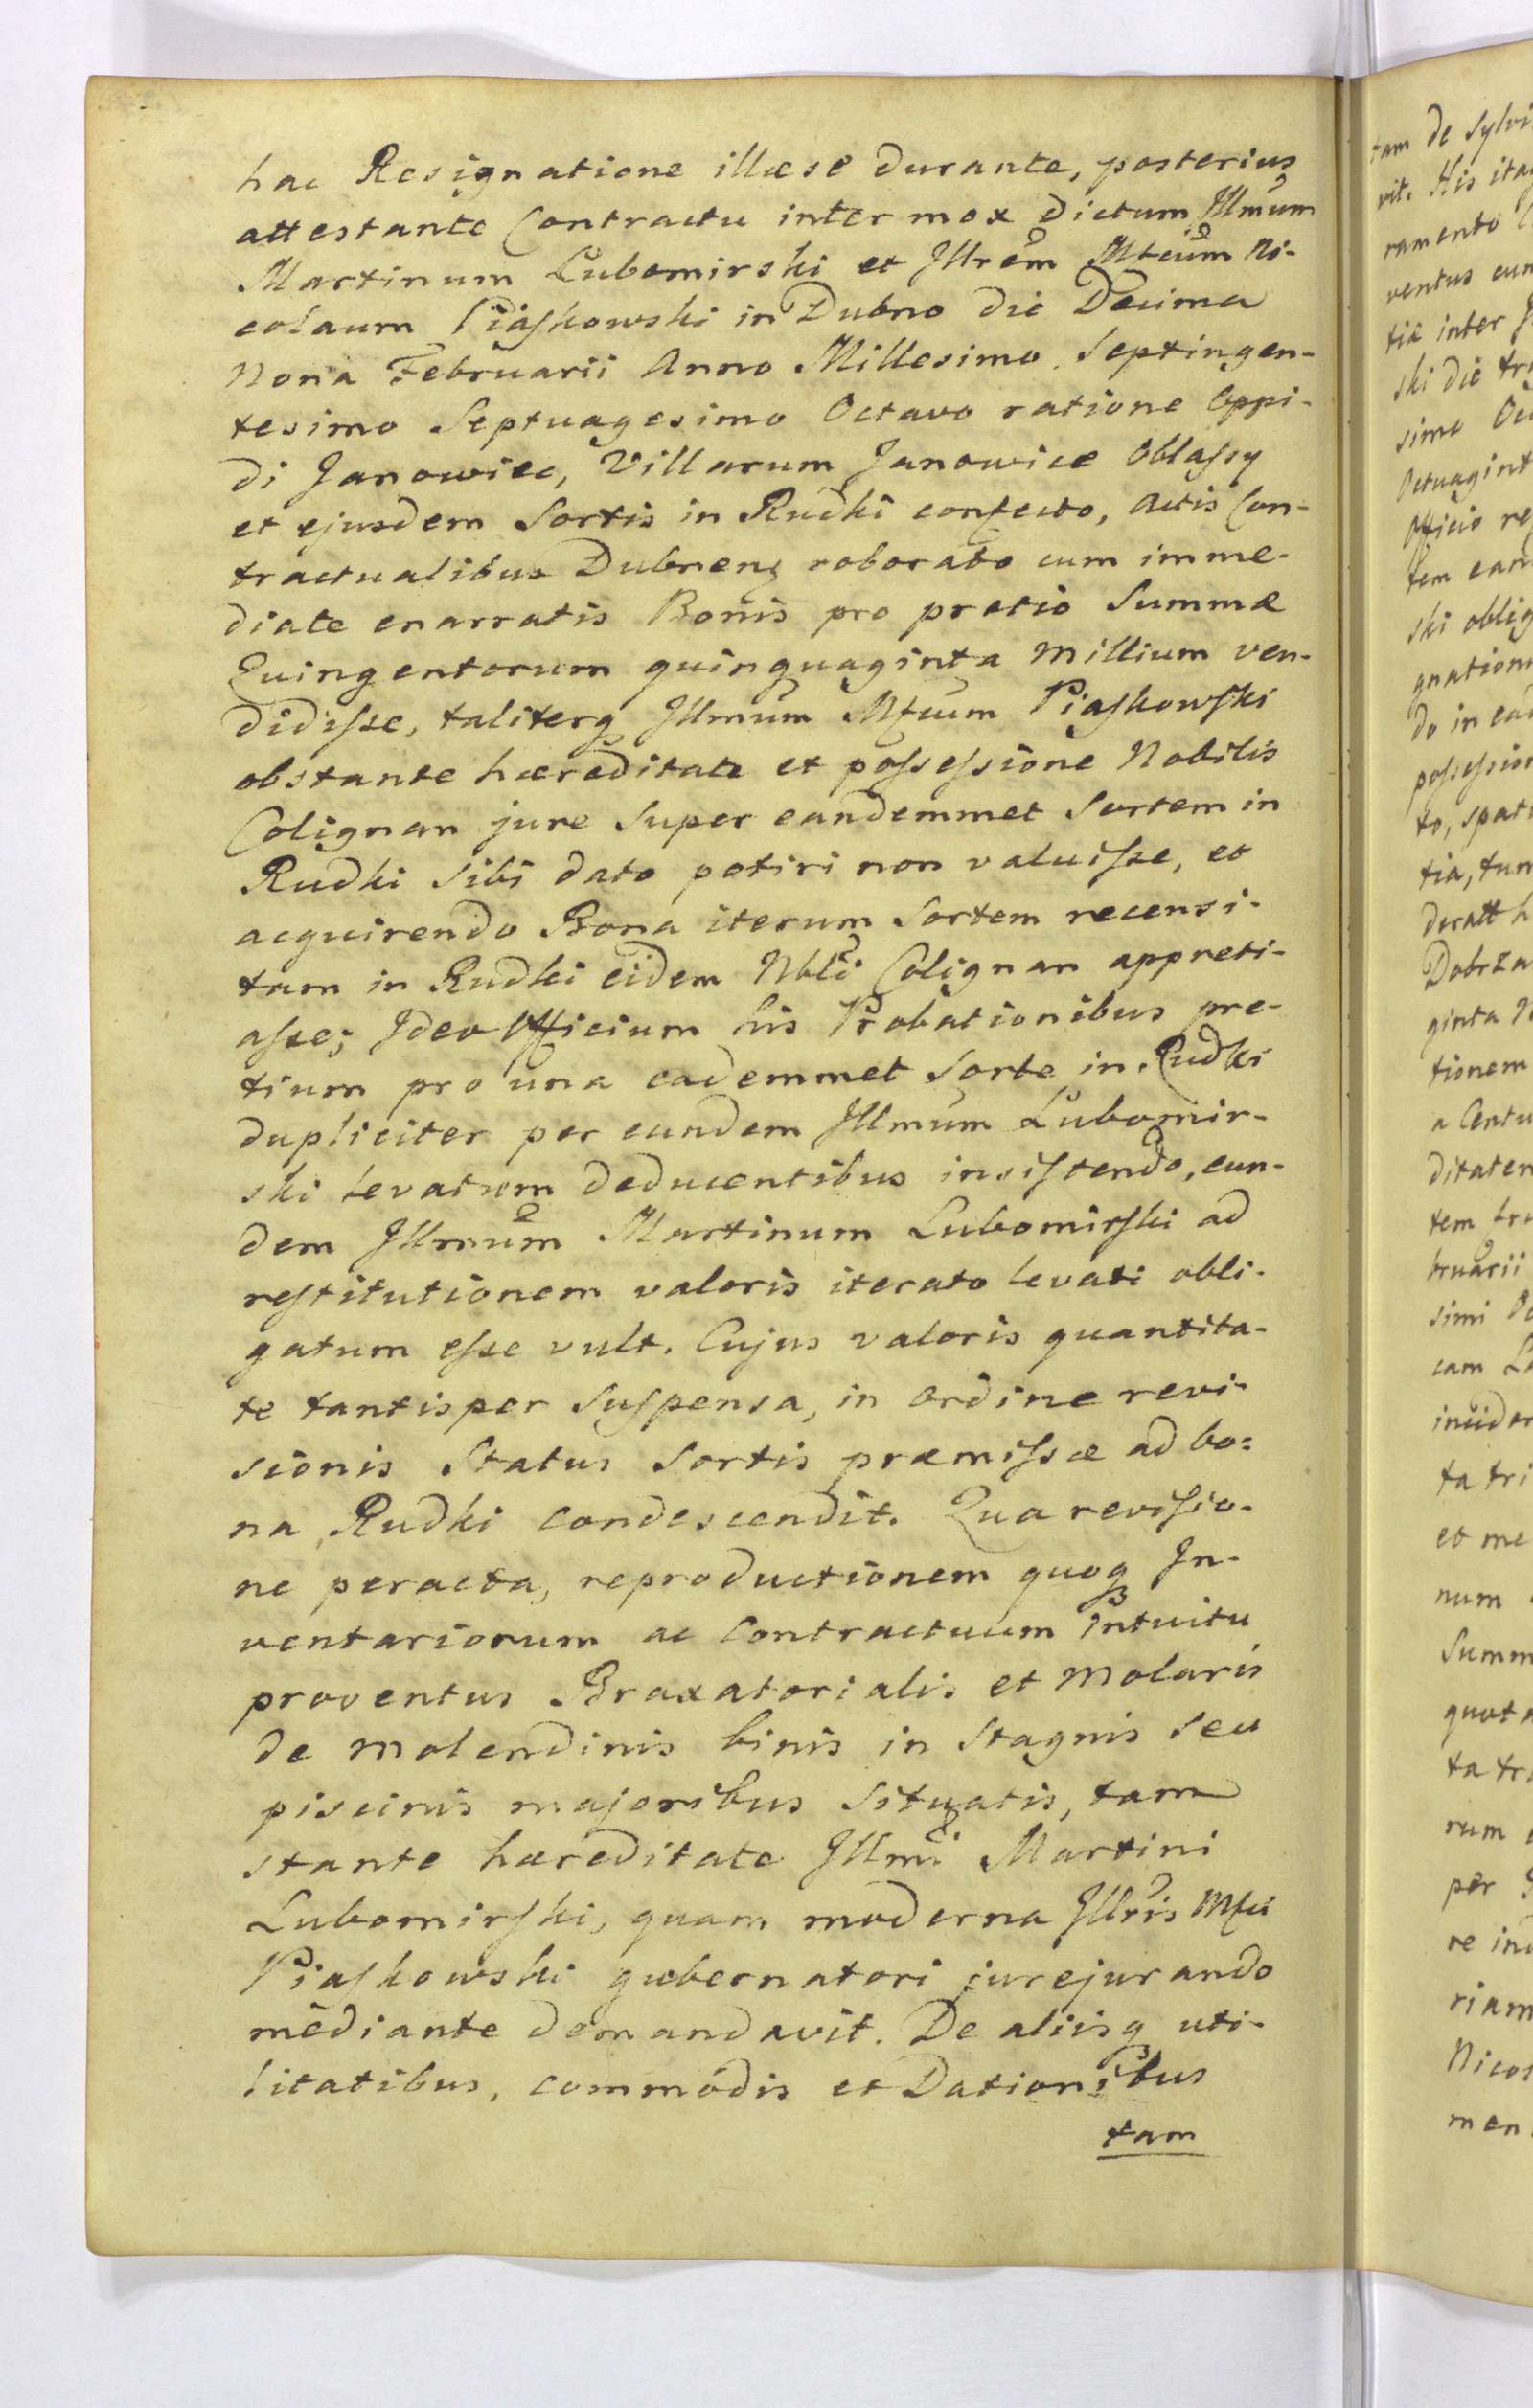 hac Resignatione illæse durante, posterius
attestante Contractu inter mox dictum Illmum
Martinum Lubomirski et Illrem Mfcum Ni-
colaum Piaskowski in Dubno die Decima
Nona Februarii Anno Millesimo Septingen-
tesimo Septuagesimo Octavo ratione Oppi-
di Janowiec, Villarum Janowice Oblaſsy
et ejusdem Sortis in Rudki confecto, Actis Con-
tractualibus Dubneng roborato cum imme-
diate enarratis Bonis pro pretio Summæ
Quingentorum quinquaginta Millium ven-
didiſse, taliterq Illmum Mfcum Piaſkowſki
obstante hæreditate et poſseſsione Nobilis
Colignan jure super eandemmet Sortem in
Rudki Sibi dato potiri non valuiſse, et
acquirendo Bona iterum Sortem recensi-
tam in Rudki eidem Nbli Colignan appreti-
aſse; Ideo Officium his Probationibus pre-
tium pro una eademmet Sorte in Rudki
dupliciter per eundem Illmum Lubomir-
ski levatum deducentibus insiſtendo, eun-
dem Illmum Martinum Lubomirſki ad
reſtitutionem valoris iterato levati obli-
gatum eſse vult. Cujus valoris quantita-
te tantisper Suſpensa, in ordine revi-
sionis Status Sortis præmiſsæ ad bo=
na Rudki condescendit. Qua reviſio-
ne peracta, reproductionem quoq In-
ventariorum ac Contractuum intuitu
proventus Braxatorialis et Molaris
de molendinis binis in Stagnis seu
piscinis majoribus Situatis, tam
stante hæreditate Illmi Martini
Lubomirſki, quam moderna Illris Mfci
Piaſkowski gubernatori jurejurando
mediante demandavit. De aliisq uti-
litatibus, commodis et Dationibus
tam
tam de Sylvi
vit. His itaq
ramento
ventus eun
tia inter
ski die tri
simo Oc
Octuagint
Officio re
tem ean
ski oblig
gnation
do in ea
poſseſsion
to, spati
tia, tum
Dobrza
ginta N
tionem
a Centu
ditatem
tem fru
bruarii
simi Oc
cam
incider
ta tri
et me
num
Summ
quot
ta tri
rum
per
re ind
riam
Nicol
men